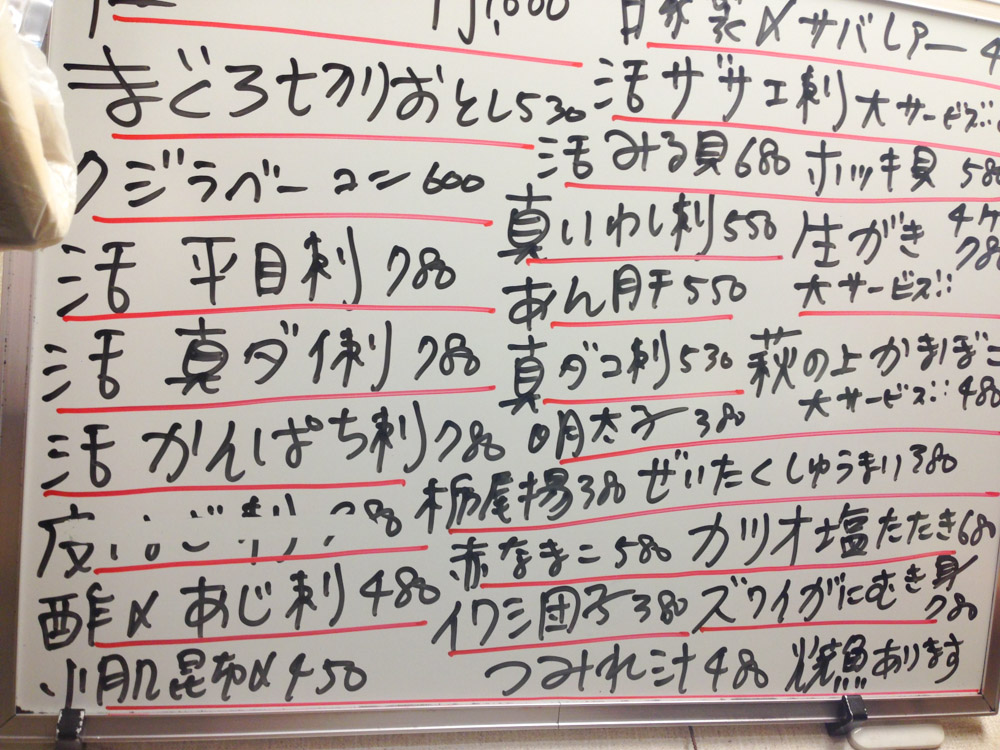 1,000
まぐろ切りおとし530
クジラベーコン600
活 平目刺 780
活 真ダイ刺 780
活 かんぱち刺780
酢〆あじ刺480
小肌昆布〆450
自家製〆サバレアー
活サザエ刺 大サービス
活みる貝680 ホッキ貝 580
真いわし刺550
あん肝550
生がき 4ケ
780
大サービス
真ダコ刺530
萩の上かまぼこ
大サービス 480
明太子 380
栃尾揚380
ぜいたくしゅうまい380
赤なまこ580
カツオ塩たたき680
イワシ団子380
ズワイガニむき身
780
つみれ汁480
焼魚あります